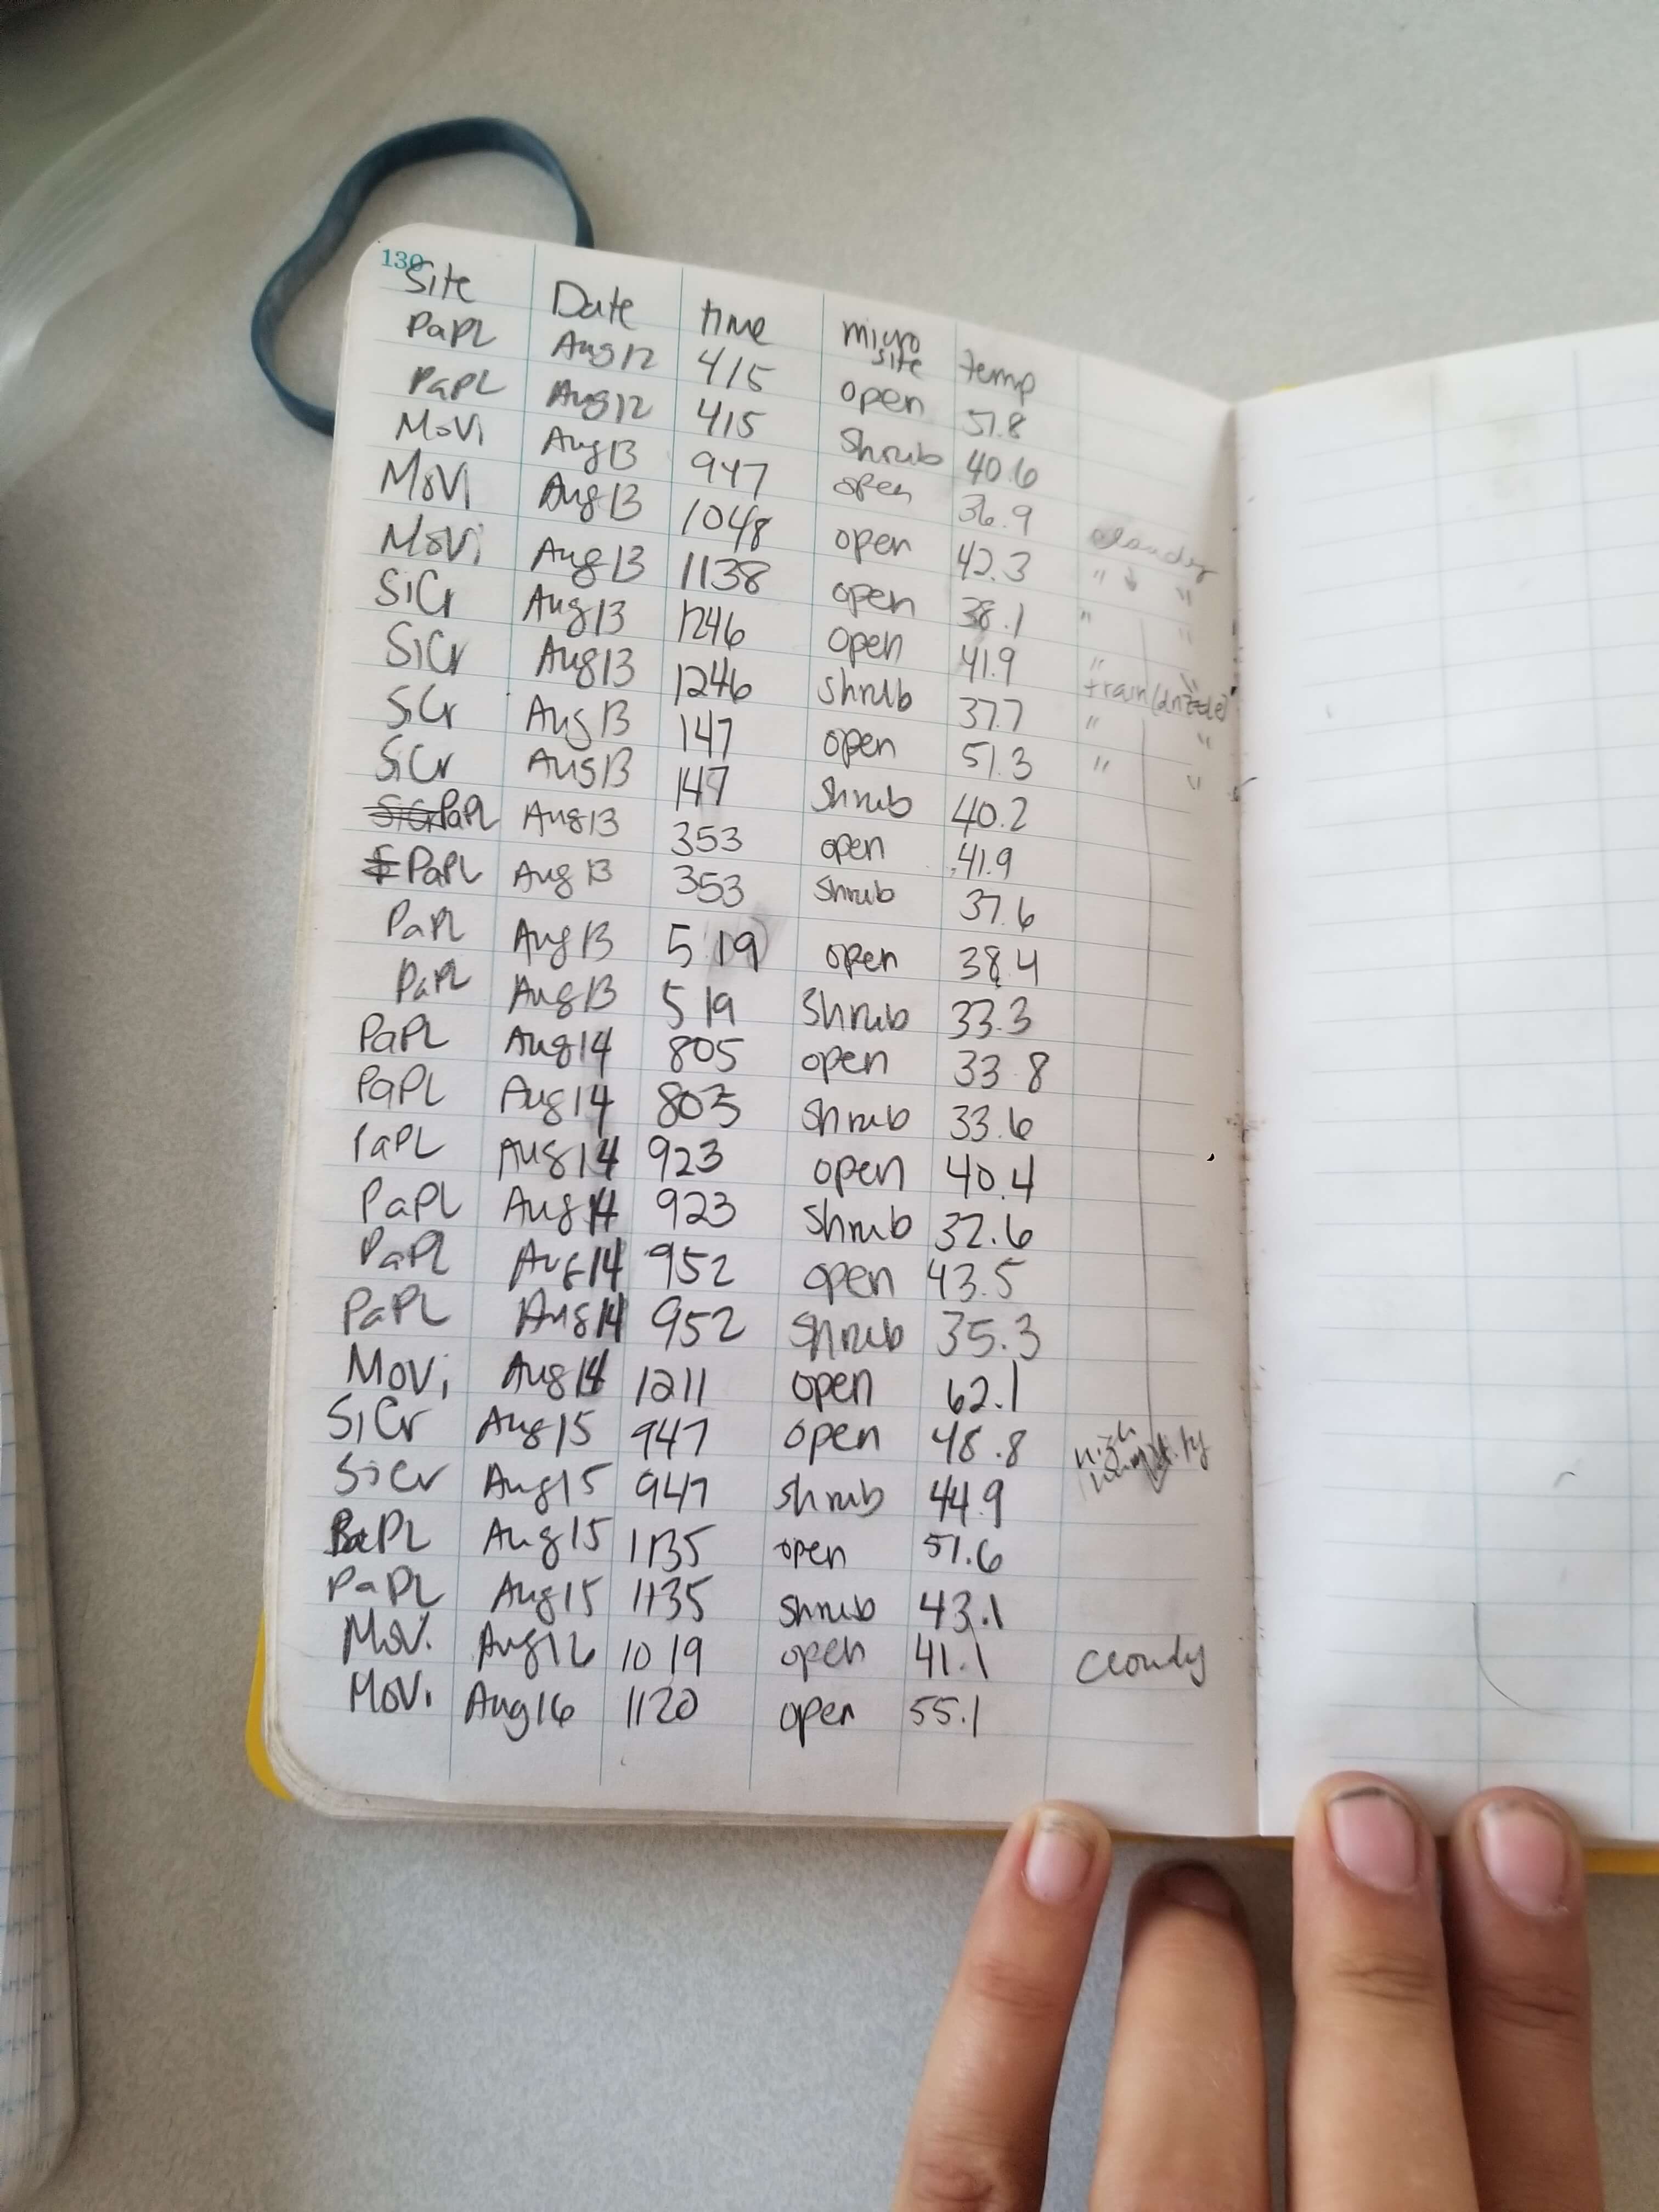 130
Site Date time micro site temp
PaPL Aug12 415 open 51.8
PaPL Aug12 415 Shrub 40.6
MoVi Aug13 947 open 36.9 cloudy
MoVi Aug13 1048 open 42.3 " "
MoVi Aug13 1138 open 38.1 " "
SiCr Aug13 1246 open 41.9 " "
SiCr Aug13 1246 shrub 37.7 + rain (drizzle)
SiCr Aug13 147 open 51.3 " "
SiCr Aug13 147 Shrub 40.2 " "
PaPL Aug13 353 open 41.9
PaPL Aug13 353 Shrub 37.6
PaPL Aug13 519 open 38.4
PaPL Aug13 519 Shrub 33.3
PaPL Aug14 805 open 33.8
PaPL Aug14 805 Shrub 33.6
PaPL Aug14 923 open 40.4
PaPL Aug14 923 Shrub 32.6
PaPL Aug14 952 open 43.5
PaPL Aug14 952 Shrub 35.3
MoVi Aug14 1211 open 62.1
SiCr Aug15 947 open 48.8 high humidity
SiCr Aug15 947 shrub 44.9
PaPL Aug15 1135 open 51.6
PaPL Aug15 1135 Shrub 43.1
MoVi Aug16 1019 open 41.1 cloudy
MoVi Aug16 1120 open 55.1